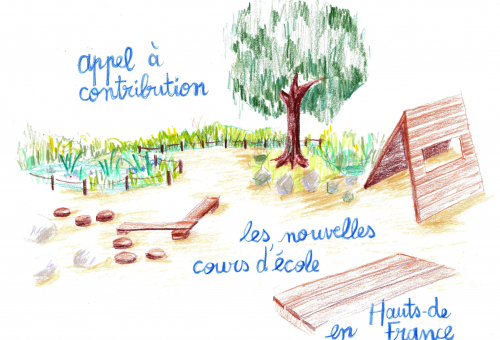 appel à
contribution
les nouvelles
cours d'école
en Hauts-de
France